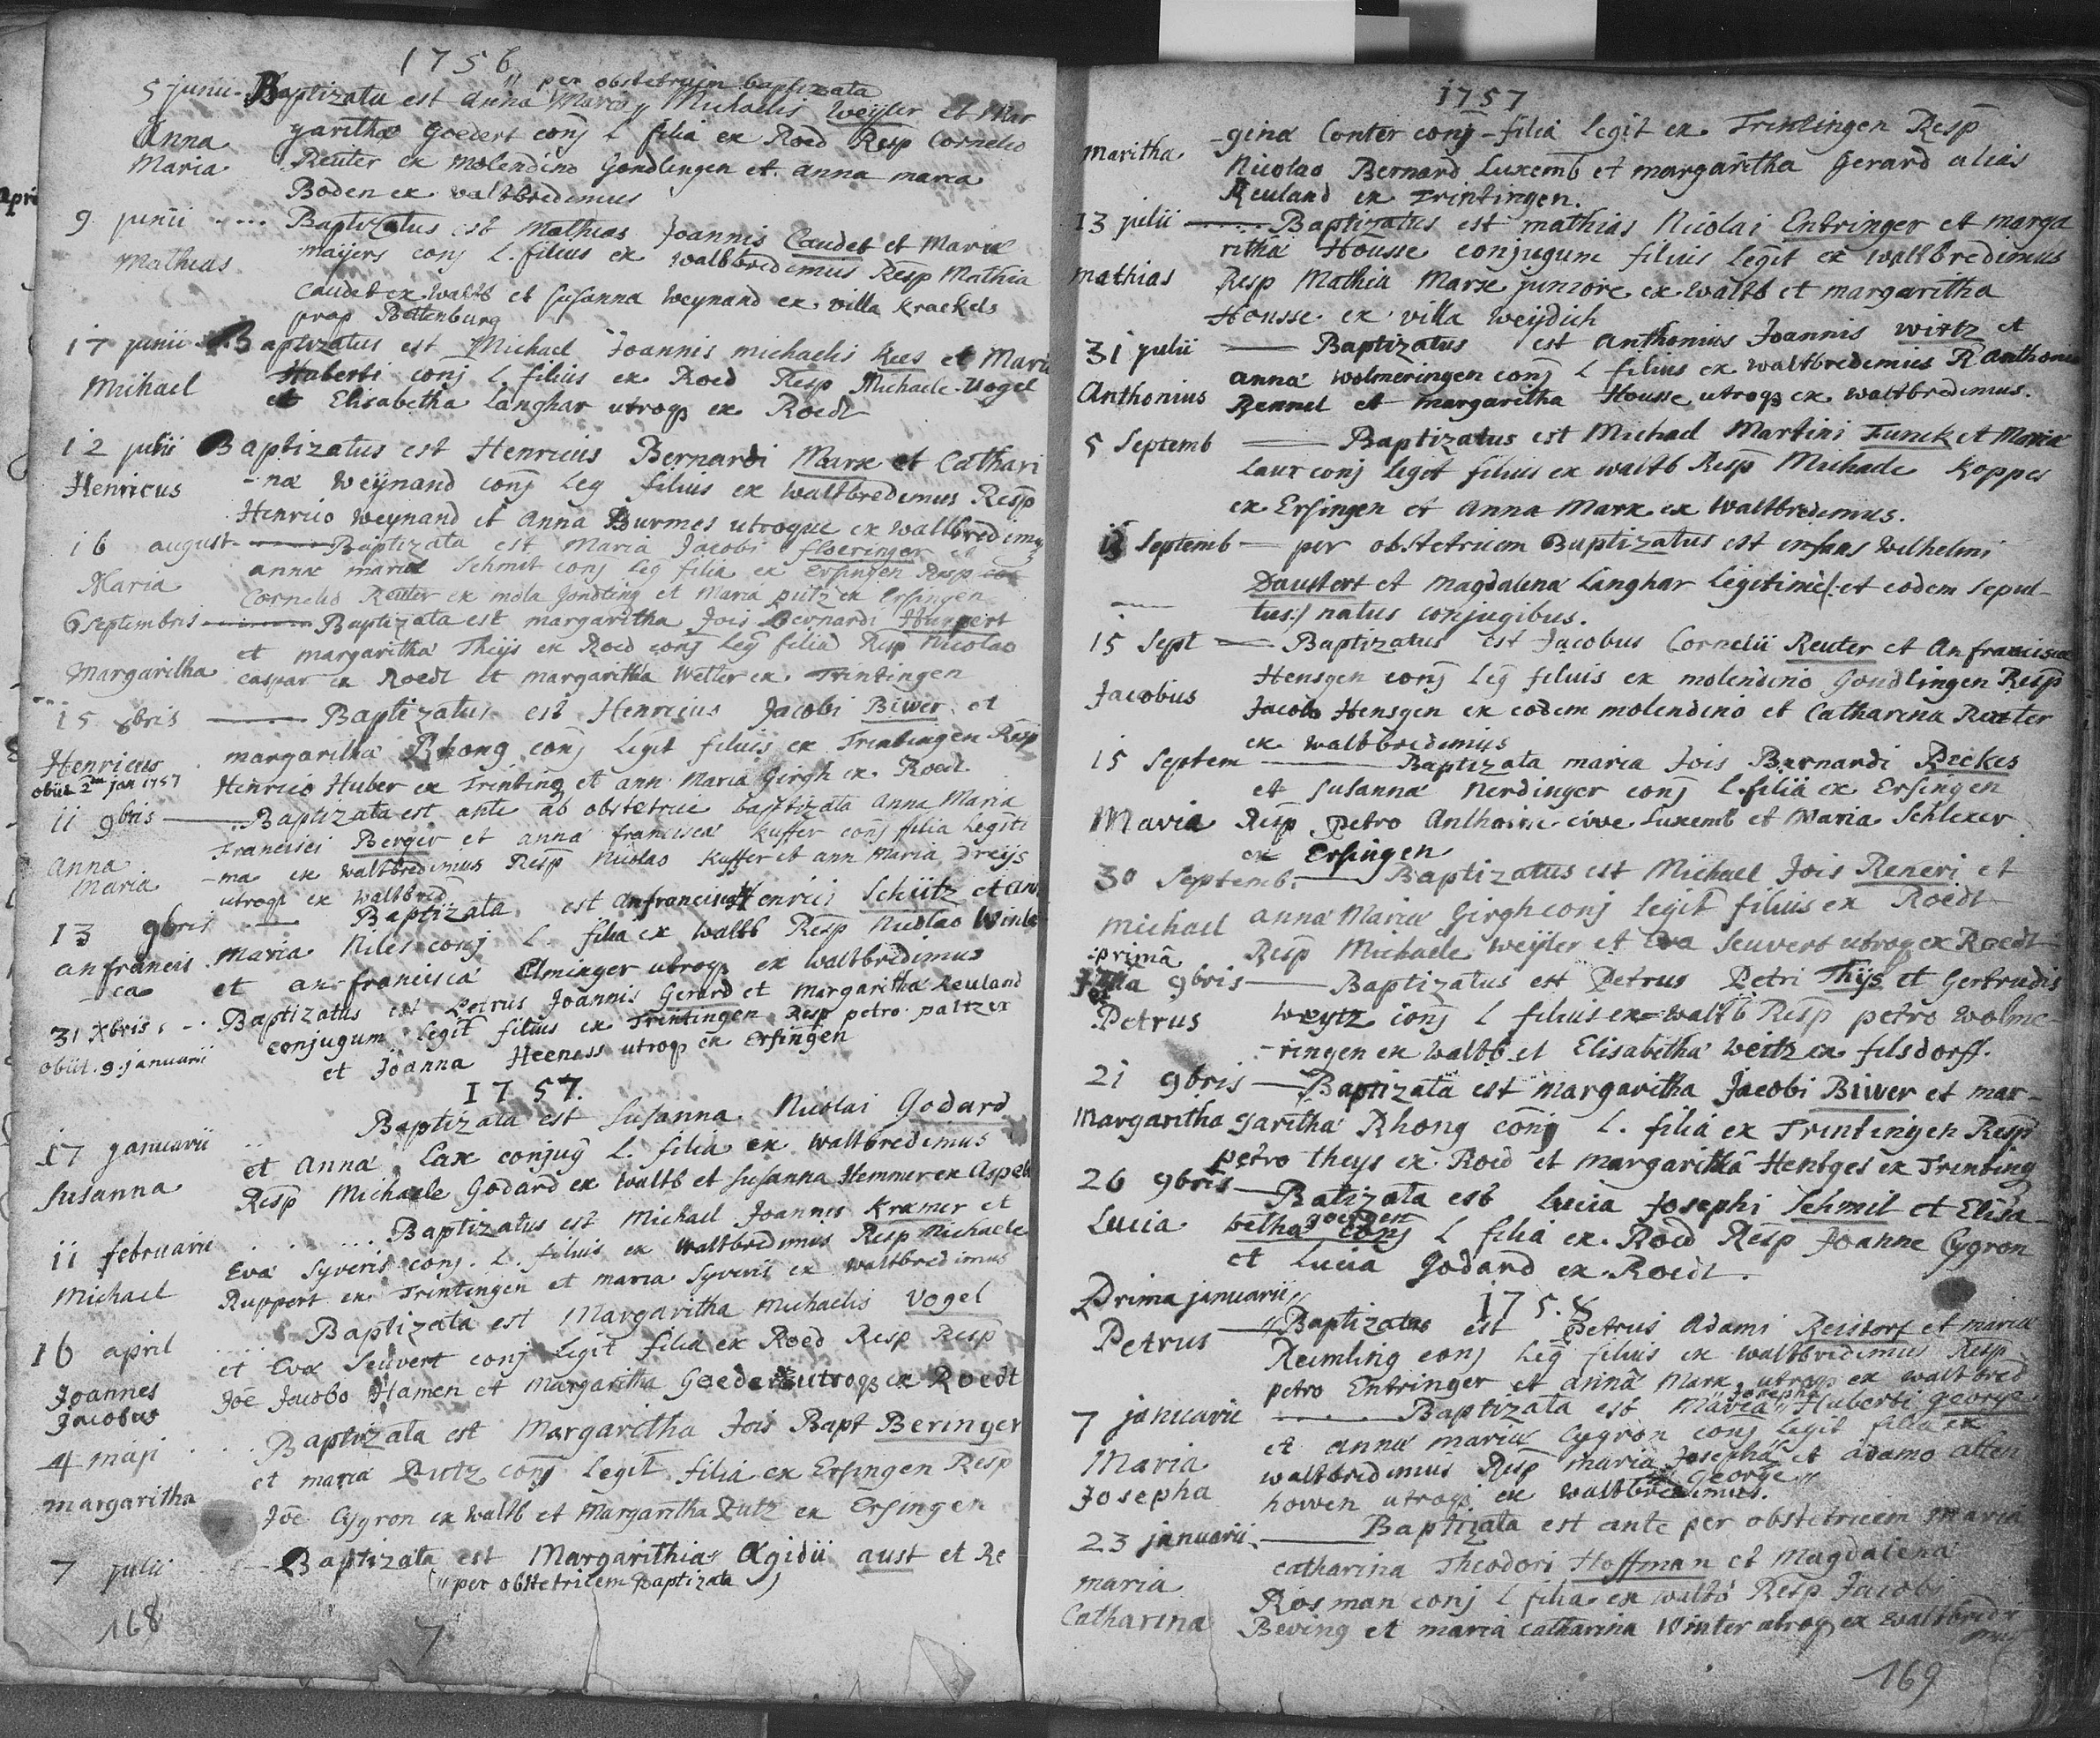 1756
5 junii - Baptizata est Anna Maria // per obstetricem baptizata // Michaelis Weyler et Mar
Anna garitha Goedert conj L filia ex Roed Resp Cornelio
Maria Reuter ex molendino Gondlingen et anna maria
Boden ex waltbredimus
9 junii ..... Baptizatus est Mathias Joannis Caudet et Maria
Mathias maijers conj L. filius ex waltbredimus Resp Mathia
Caudet ex waltb et Susanna Weynand ex villa Krackels
prop Betenburg
17 junii Baptizatus est Michael Joannis michaelis Kees et Maria
Michael Huberti conj L. filius ex Roed Resp Michaele Vogel
et Elisabetha Langhar utroq ex Roedt
12 julii Baptizatus est Henricus Bernardi Marx et Cathari
Henricus -na Weynand conj leg filius ex waltbredimus Resp
Henrico Weynand et Anna Burmes utroque ex waltbredimus
16 august - Baptizata est Maria Jacobi floeringer et
Maria annæ mariæ Schmit conj leg filia ex Ersingen Resp
Cornelio Reuter ex mola Gondling et Maria putz ex Ersingen
6 septembris - Baptizata est margaritha Jois Bernardi Huppert
et margaritha Thijs ex Roed conj leg filia Resp Nicolao
Margaritha caspar ex Roedt et margaritha Wetter ex Trintingen
15 8bris - Baptizatus est Henricus Jacobi Biwer et
Henricus margaritha Rhong conj legit filius ex Trintingen Resp
obiit 2da jan 1757 Henrico Huber ex Trinting et ann Maria Girgh ex Roedt
11 9bris - Baptizata est ante ab obstetrice baptizata Anna Maria
Anna Francisci Berger et anna francisca Kuffer conj filia legiti
Maria -ma ex waltbredimus Resp Nicolao Kuffer et ann Maria Dreijs
utroq ex waltbred
13 9bris - Baptizata est anfrancisca Henrici Schütz et an
an francis maria Niles conj L. filia ex waltb Resp Nicolao Winter
- ca et an francisca Elminger utroq ex waltbredimus
31 Xbris . .. Baptizatus est Petrus Joannis Gerard et Margaritha Reuland
obiit . 9 . januarii conjugum legit filius ex Trintingen Resp petro paltzer
et Joanna Heeness utroq ex Ersingen
1757.
17 januarii .. Baptizata est Susanna Nicolai Godard
Susanna et Anna Lax conjug L. filia ex waltbredimus
Resp Michaele Godard ex waltb et Susanna Hemmer ex Aspelt
11 februarii ... Baptizatus est Michael Joannis Kremer et
Michael Eva Syveris conj. L. filius ex waltbredimus Resp Michaele
Ruppert ex Trintingen et maria Syveris ex waltbredimus
16 april ..... Baptizata est Margaritha Michaelis Vogel
Joannes et Eva Seuvert conj legit filia ex Roed Resp Resp
Jacobus Joe Jacobo Hamen et Margaritha Goedert utroq ex Roedt
4 maji .... Baptizata est Margaritha Jois Bapt Beringer
margaritha et maria Putz conj legit. filia ex Ersingen Resp
Joe Cygron ex waltb et Margaritha Putz ex Ersingen
7 julii - Baptizata est Margarithia Ægidii aust et Re
( // per obstetricem Baptizata )
168
7
1757
maritha -gina Conter conj - filia legit ex Trintingen Resp
Nicolao Bernard Luxemb et margaritha Gerard alias
Reuland ex Trintingen.
13 julii - Baptizatus est mathias Nicolai Entringer et marga
mathias ritha Housse conjugum filius legit ex waltbredimus
Resp Mathia Marx juniore ex waltb et margaritha
Housse ex villa Weydich
31 julii - Baptizatus est Anthonius Joannis Wirtz et
Anthonius anna Wolmeringen conj L filius ex waltbredimus R Anthonio
Rennel et margaritha Housse utroq ex waltbredimus.
5 Septemb - Baptizatus est Michael Martini Funck et Maria
Laux conj legit filius ex waltb Resp Michaele Koppes
ex Ersingen et Anna Marx ex Waltbredimus.
Septemb - per obstetricem Baptizatus est infans Wilhelmi
Daustert et Magdalena Langhar legitime /: et eodem sepul-
tus :/ natus conjugibus.
15 Sept - Baptizatus est Jacobus Cornelii Reuter et An francisca
Jacobus Hensgen conj leg filius ex molendino Gondlingen Resp
Jacob Hensgen ex eodem molendino et Catharina Reuter
ex waltbredimus
15 Septem - Baptizata maria Jois Bernardi Deckes
et Susanna Nerdinger conj L. filia ex Ersingen
Maria Resp petro Anthoine cive Luxemb et Maria Schlexer
ex Ersingen
30 Septemb. - Baptizatus est Michael Jois Reneri et
Michael anna Maria Girgh conj legit filius ex Roedt
Resp Michaele Weyler et Eva Seuvert utroq ex Roedt
prima 9bris - Baptizatus est Petrus Petri Thijs et Gertrudis
Petrus Weytz conj L filius ex waltb Resp petro Wolme-
-ringen ex waltb et Elisabetha Weitz ex filsdorff.
21 9bris - Baptizata est Margaritha Jacobi Biwer et mar-
Margaritha garitha Rhong conj L. filia ex Trintingen Resp
petro theys ex Roed et Margaritha Hentges ex Trinting
26 9bris - Batizata est Lucia Josephi Schmit et Elisa-
Lucia betha goergen conj L filia ex Roed Resp Joanne Cygron
et Lucia Godard ex Roedt.
Prima januarii // 1758
Petrus - // Baptizatus est Petrus Adami Reistorf et maria
Reimling conj leg filius ex waltbredimus Resp
petro Entringer et anna Marx utroq ex waltbred
7 januarii - Baptizata est Maria // Josepha // Huberti George
Maria et anna maria Cygron conj legit filia ex
Josepha waltbredimus Resp maria Josepha George et adamo alten
howen utroq ex waltbredimus.
23 januarii. - Baptizata est ante per obstetricem Maria
maria catharina Theodori Hoffman et Magdalena
Catharina Rosman conj L filia ex waltb Resp Jacobi
Beving et maria catharina Winter utroq ex waltbredi
mus
169